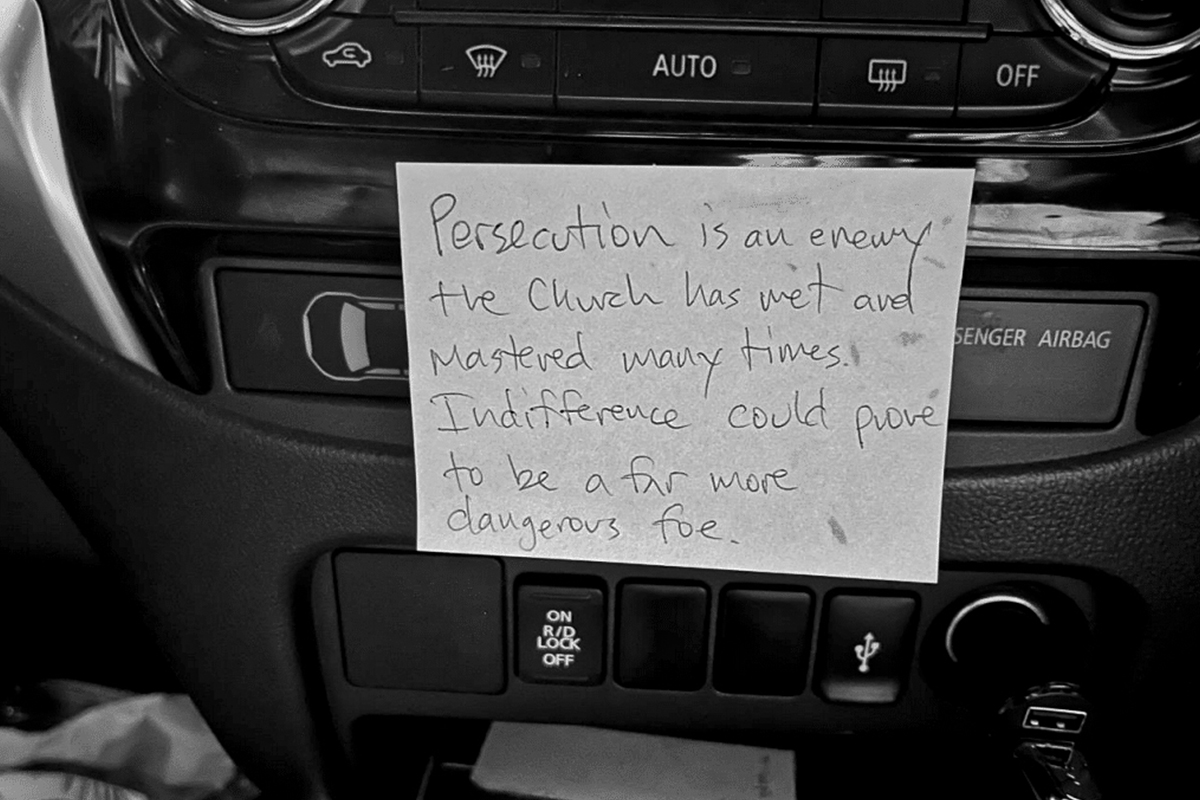 AUTO
OFF
Persecution is an enemy
the Church has met and
Mastered many times.
Indifference could prove
to be a far more
dangerous foe.
SENGER AIRBAG
ON
R/D
LOCK
OFF